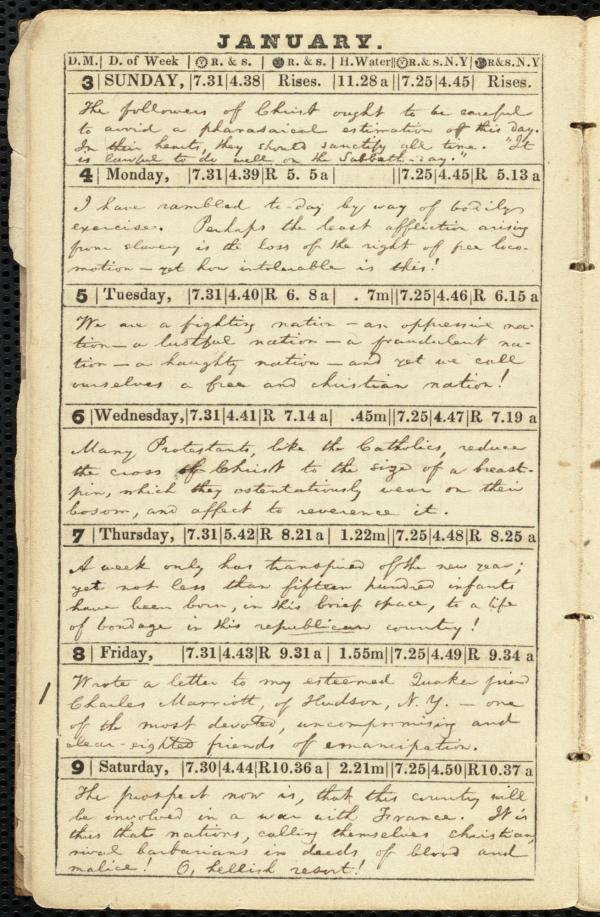 JANUARY.
D.M.| D. of Week | R. & s. | R. & s. | H.Water|| R.& s.N.Y| R&s.N.Y
3 | SUNDAY, |7.31|4.38| Rises. |11.28 a||7.25|4.45| Rises.
The followers of Christ ought to be careful
to avoid a pharasaical estimation of this day.
In their hearts, they should sanctify all time. "It
is lawful to do well on the Sabbath-day."
4 | Monday, |7.31|4.39|R 5. 5 a| ||7.25|4.45|R 5.13 a
I have rambled to-day by way of bodily
exercise. Perhaps the least affliction arising
from slavery is the loss of the right of free loco-
motion — yet how intolerable is this!
5 | Tuesday, |7.31|4.40|R 6. 8 a| . 7m||7.25|4.46|R 6.15 a
We are a fighting nation — an oppressive na-
tion — a lustful nation — a fraudulent na-
tion — a haughty nation — and yet we call
ourselves a free and christian nation!
6 | Wednesday,|7.31|4.41|R 7.14 a| .45m||7.25|4.47|R 7.19 a
Many Protestants, like the Catholics, reduce
the cross of Christ to the size of a breast-
pin, which they ostentatiously wear on their
bosom, and affect to reverence it.
7 | Thursday, |7.31|5.42|R 8.21 a| 1.22m||7.25|4.48|R 8.25 a
A week only has transpired of the new year;
yet not less than fifteen hundred infants
have been born, in this brief space, to a life
of bondage in this republican country!
8 | Friday, |7.31|4.43|R 9.31 a| 1.55m||7.25|4.49|R 9.34 a
Wrote a letter to my esteemed Quaker friend
Charles Marriott, of Hudson, N.Y. — one
of the most devoted, uncompromising and
clear-sighted friends of emancipation.
9 | Saturday, |7.30|4.44|R10.36 a| 2.21m||7.25|4.50|R10.37 a
The prospect now is, that this country will
be involved in a war with France. It is
thus that nations, calling themselves christian,
rival barbarians in deeds of blood and
malice! O, hellish resort!